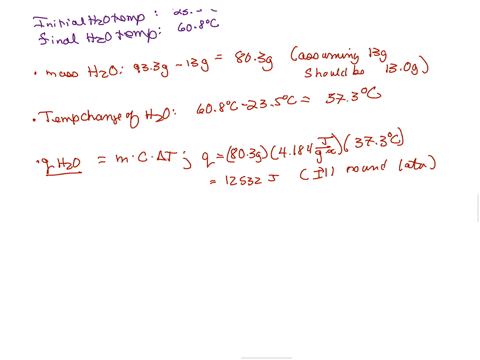 Initial H2O temp :
Final H2O temp : 60.8°C
• mass H2O: 93.3g - 13g = 80.3g (assuming 13g
should be 13.0g)
• Temp change of H2O: 60.8°C - 23.5°C = 37.3°C
• q H2O = m · C · ΔT ; q = (80.3g)(4.184 J/g°C)(37.3°C)
= 12532 J (I'll round later)